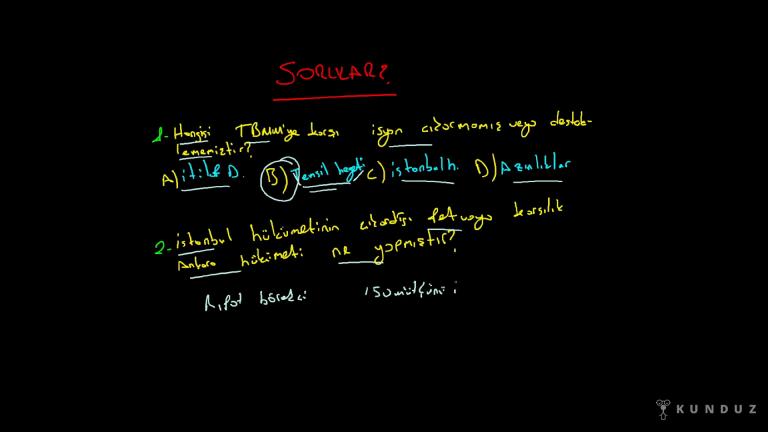 SORULAR?
1- Hangisi TBMM'ye karşı isyan çıkarmamış veya destek-
lememiştir?
A) itilaf D. B) Temsil heyeti C) istanbul h. D) Azınlıklar
2- istanbul hükümetinin çıkardığı fetvaya karşılık
Ankara hükümeti ne yapmıştır?
Rıfat börekçi 150 müftünün
KUNDUZ